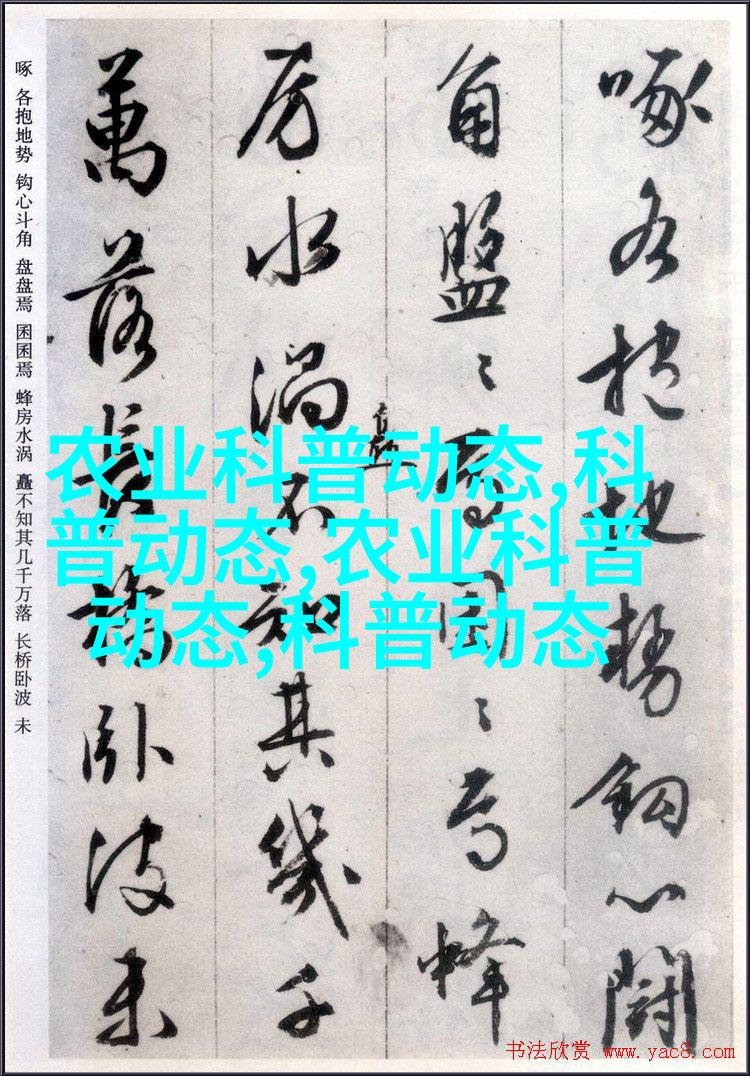 啄各抱地势钩心鬪
角盤〻焉囷〻焉蜂
房水渦矗不知其幾千
萬落長橋臥波未
啄 各抱地势 钩心斗角 盘盘焉 囷囷焉 蜂房水涡 矗不知其几千万落 长桥卧波 未
农业科普动态,科
普动态,农业科普
动态,科普动态
书法欣赏 www.yac8.com